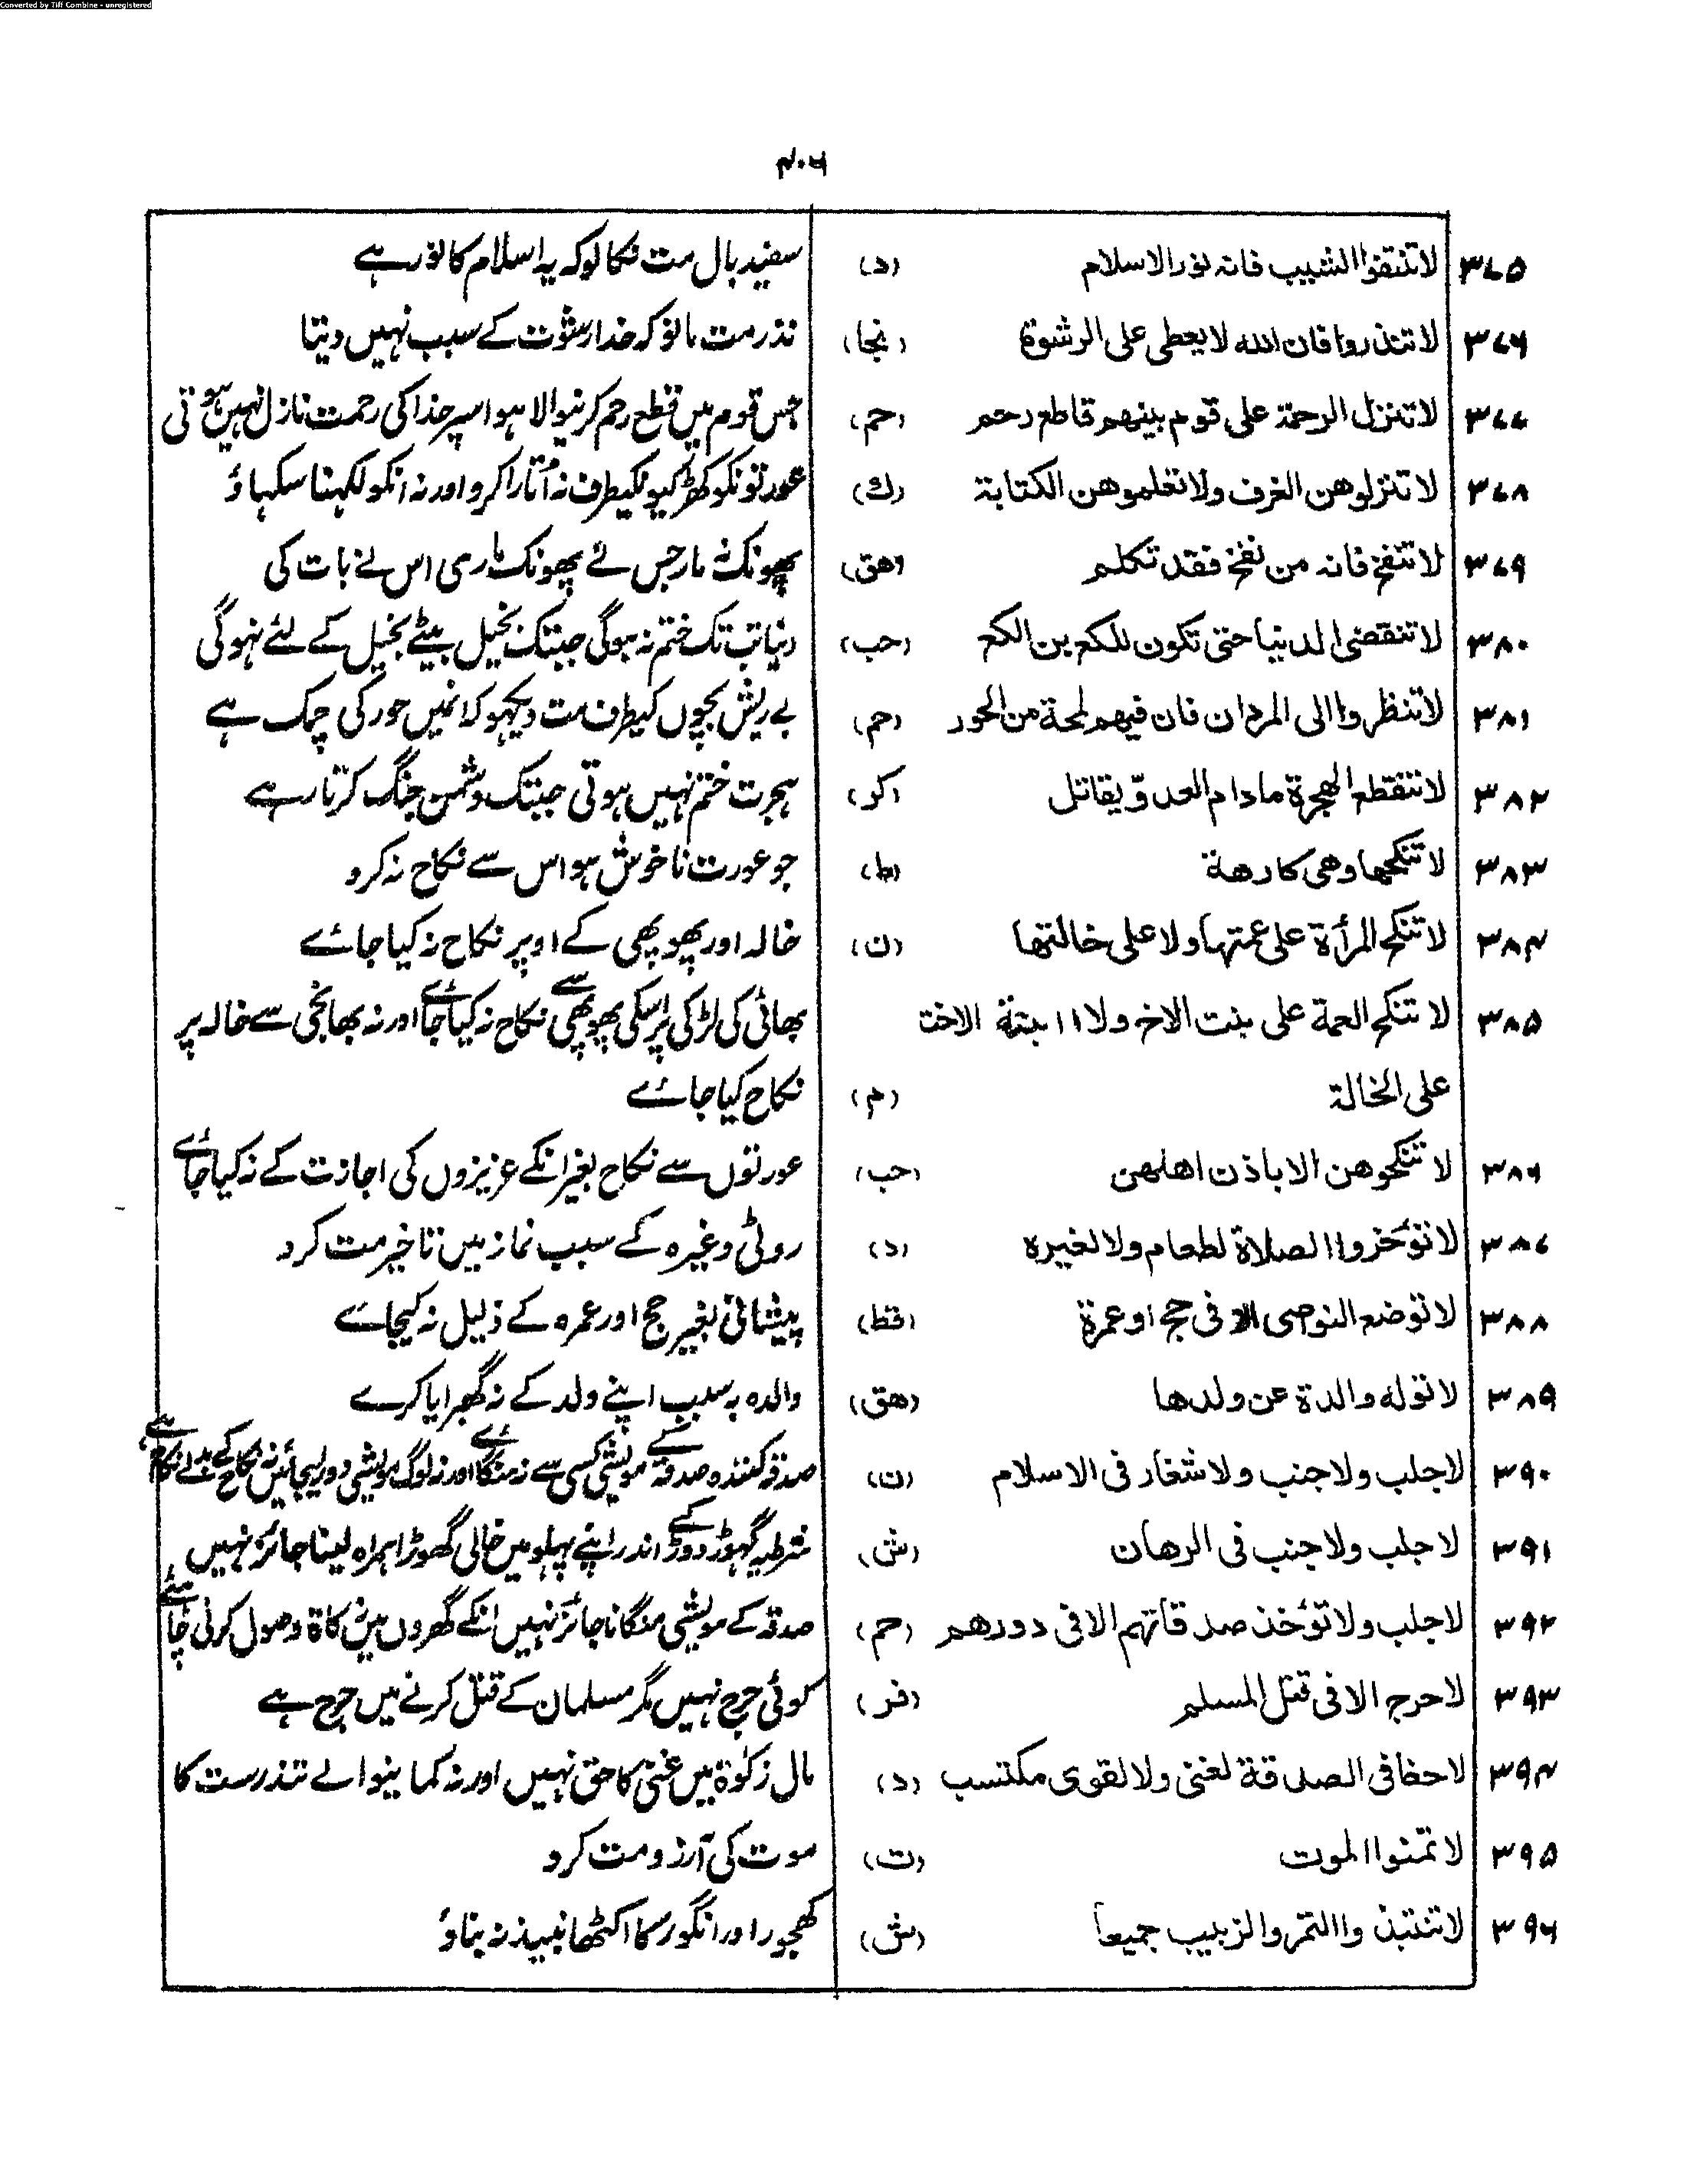 Converted by Tiff Combine - unregistered
۴۰۶
۳۷۵ لا تنتفوا الشیب فانه نور الاسلام (د) سفید بال مت نکالو کہ یہ اسلام کا نور ہے
۳۷۶ لا تنذروا فان الله لا یعطی علی الرشوة (نجا) نذر مت مانو کہ خدا رشوت کے سبب نہیں دیتا
۳۷۷ لا تنزل الرحمة علی قوم بینهم قاطع رحم (حم) جس قوم میں قطع رحم کرنیوالا ہو اسپر خدا کی رحمت نازل نہیں ہوتی
۳۷۸ لا تنزلوهن الغرف ولا تعلموهن الکتابة (ك) عورتونکو کھڑکیونکیطرف نہ اُتارا کرو اور نہ انکو لکہنا سکہاؤ
۳۷۹ لا تنفخ فانه من نفخ فقد تکلم (هق) پھونک نہ مار جس نے پھونک ماری اس نے بات کی
۳۸۰ لا تنقضی الدنیا حتی تکون للکع بن الکع (حب) دنیا تب تک ختم نہ ہوگی جبتک بخیل بیٹے بخیل کے لئے نہوگی
۳۸۱ لا تنظروا الی المردان فان فیهم لمحة من الحور (حم) بے ریش بچوں کیطرف مت دیکہو کہ انمیں حور کی چمک ہے
۳۸۲ لا تنقطع الهجرة مادام العدوّ یقاتل (کر) ہجرت ختم نہیں ہوتی جبتک دشمن جنگ کرتا رہے
۳۸۳ لا تنکحها وهی کارهة (ط) جو عورت ناخوش ہو اس سے نکاح نہ کرو
۳۸۴ لا تنکح المرأة علی عمتها ولا علی خالتها (ن) خالہ اور پھوپھی کے اوپر نکاح نہ کیا جائے
۳۸۵ لا تنکح العمة علی بنت الاخ ولا ا ابنة الاخت بھائی کی لڑکی پر اسکی پھوپھی سے نکاح نہ کیا جائے اور نہ بھانجی سے خالہ پر
علی الخالة (م) نکاح کیا جائے
۳۸۶ لا تنکحوهن الا باذن اهلهن (حب) عورتوں سے نکاح بغیر انکے عزیزوں کی اجازت کے نہ کیا جائے
۳۸۷ لا تؤخروا الصلاة لطعام ولا لغیره (د) روٹی وغیرہ کے سبب نماز میں تاخیر مت کرو
۳۸۸ لا توضع النوصی الا فی حج او عمرة (قط) پیشانی بغیر حج اور عمرہ کے ذلیل نہ کیجاے
۳۸۹ لا توله والدة عن ولدها (هق) والدہ بہ سبب اپنے ولد کے نہ گھبرایا کرے
۳۹۰ لا جلب ولا جنب ولا شغار فی الاسلام (ن) صدقہ کنندہ صدقہ کے مویشی کسی سے نہ منگائے اور نہ لوگ مویشی دور لیجائیں نہ نکاح کے بدلے نکاح ہے
۳۹۱ لا جلب ولا جنب فی الرهان (ش) شرطیہ گہوڑ دوڑ کے اندر اپنے پہلو میں خالی گھوڑا ہمراہ لینا جائز نہیں
۳۹۲ لا جلب ولا تؤخذ صدقاتهم الا فی دورهم (حم) صدقہ کے مویشی منگانا جائز نہیں انکے گھروں میں زکاة وصول کرنی چاہئے
۳۹۳ لا حرج الا فی قتل المسلم (فر) کوئی حرج نہیں مگر مسلمان کے قتل کرنے میں حرج ہے
۳۹۴ لا حظ فی الصدقة لغنی ولا لقوی مکتسب (د) مال زکوٰة میں غنی کا حق نہیں اور نہ کمانیوالے تندرست کا
۳۹۵ لا تمنوا الموت (ت) موت کی آرزو مت کرو
۳۹۶ لا تنتبذوا التمر والزبیب جمیعا (ش) کھجور اور انگور کا اکٹھا نبیذ نہ بناؤ